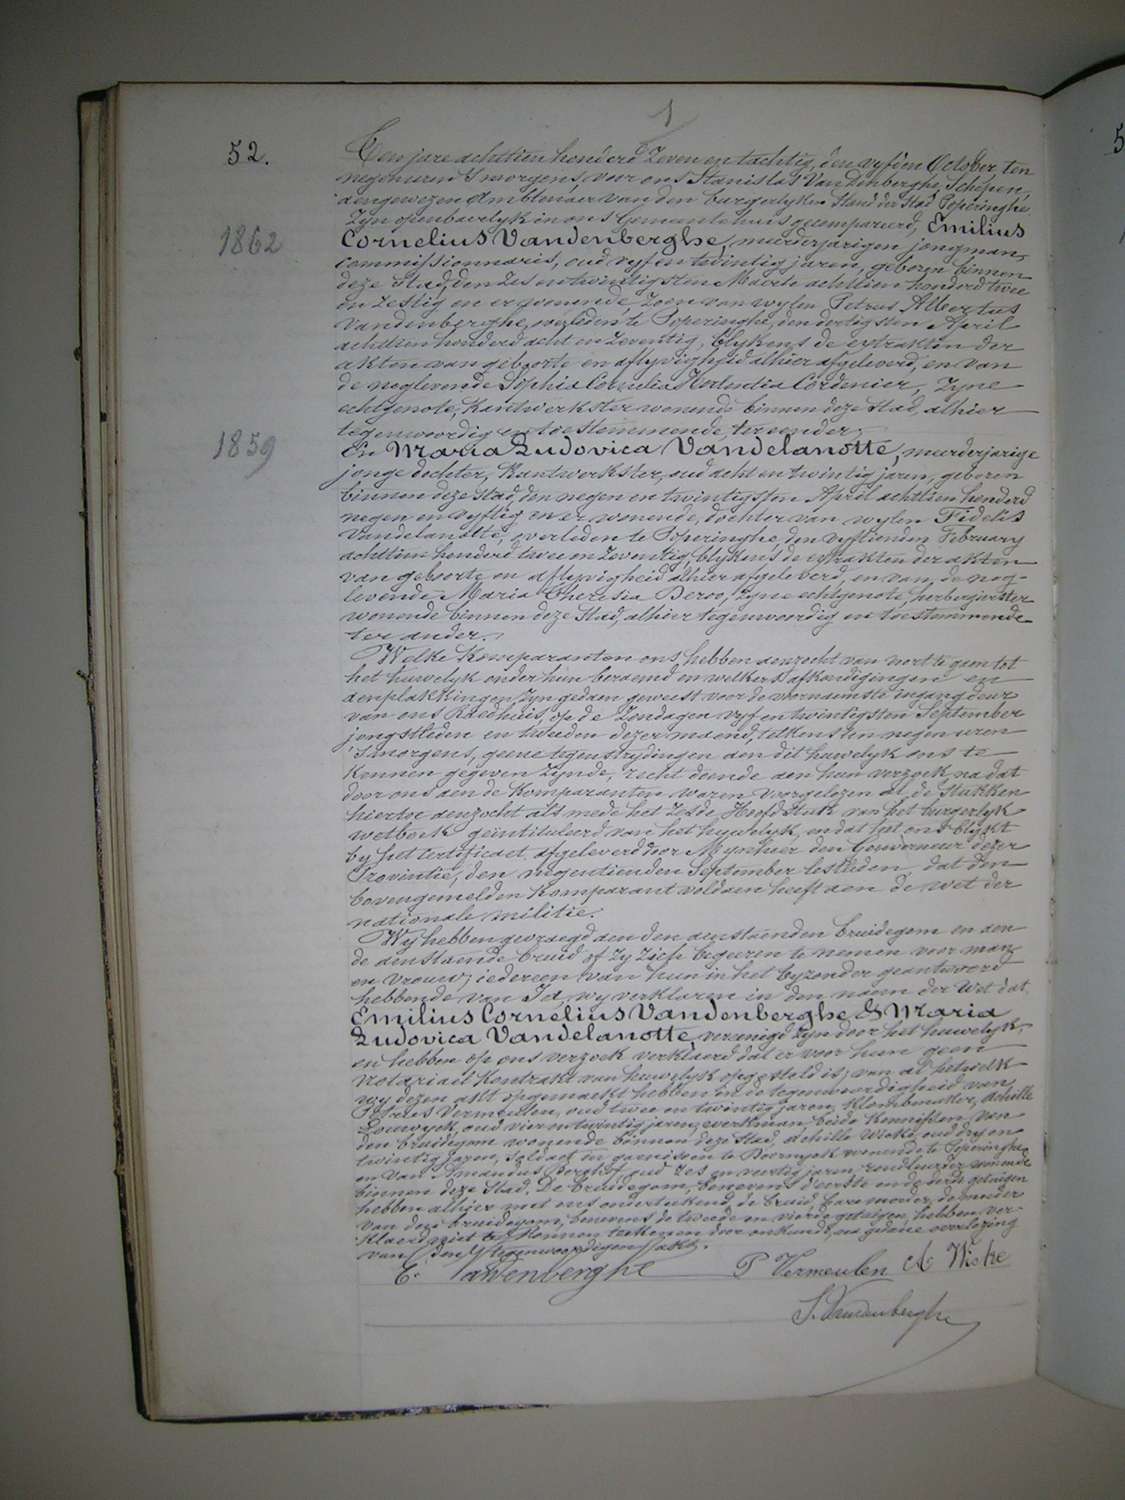 52.
Ten jare achttien honderd zeven en tachtig, den vyfden October, ten
negen uren 's morgens, voor ons Stanislas Vandenberghe, Schepen,
aengewezen Ambtenaer van den burgerlyken Stand der Stad Poperinghe
Zyn openbaerlyk in ons Gemeentehuis gecompareerd, Emilius
1862
Cornelius Vandenberghe, meerderjarigen jongman,
commissionnaris, oud vyf en twintig jaren, geboren binnen
deze Stad, den zes en twintigsten Maerte achttien honderd twee
en zestig en er wonende, zoon van wylen Petrus Albertus
Vandenberghe, overleden te Poperinghe, den dertigsten April
achttien honderd acht en zeventig, blykens de extrakten der
akten van geboorte en aflyvigheid alhier afgeleverd, en van
de noglevende Sophia Cornelia Cordenier, Zyne
echtgenote, Kantwerkster wonende binnen deze Stad, alhier
tegenwoordig en toestemmende, ter eender;
1859
En Maria Ludovica Vandelanotte, meerderjarige
jonge dochter, Kantwerkster, oud acht en twintig jaren, geboren
binnen deze Stad, den negen en twintigsten April achttien honderd
negen en vyftig en er wonende, dochter van wylen Fidelis
Vandelanotte, overleden te Poperinghe den vyftienden February
achttien honderd twee en zeventig, blykens de extrakten der akten
van geboorte en aflyvigheid alhier afgeleverd, en van de nog-
levende Maria Theresia Deroo, Zyne echtgenote, herbergierster
wonende binnen deze Stad, alhier tegenwoordig en toestemmende
ter ander.
Welke Komparanten ons hebben aenzocht van voort te gaen tot
het huwelyk onder hun beraemd en welkers afkondigingen en
aenplakkingen Zyn gedaen geweest voor de voornaemste ingangdeur
van ons Raedhuis, op de Zondagen vyf en twintigsten September
jongstleden en tweeden dezer maend, telkens ten negen uren
's morgens, geene tegenstrydingen aen dit huwelyk ons te
kennen gegeven Zynde, recht doende aen hun verzoek na dat
door ons aen de Komparanten waren voorgelezen al de Stukken
hiertoe aenzocht als mede het Zesde Hoofdstuk van het burgerlyk
wetboek geintituleerd van het huwelyk, en dat het ons blykt
by het certificaet afgeleverd door Mynheer den Gouverneur dezer
Provintie, den negentienden September lestleden, dat den
bovengemelden Komparant voldaen heeft aen de wet der
nationale militie.
Wy hebben gevraegd aen den aenstaenden bruidegom en aen
de aenstaende bruid of Zy Zich begeeren te nemen voor man
en vrouw; iedereen van hun in het byzonder geantwoord
hebbende van Ja, wy verklaren in den naem der Wet dat
Emilius Cornelius Vandenberghe & Maria
Ludovica Vandelanotte, vereenigd Zyn door het huwelyk,
en hebben op ons verzoek verklaerd dat er voor hun geen
Notariael Kontrakt van huwelyk opgesteld is; van al hetwelk
wy dezen akt opgemaekt hebben in de tegenwoordigheid van
Petrus Vermeulen, oud twee en twintig jaren, Klombmaker, Achille
oud vier en twintig jaren, werkman, beide Kennissen van
den bruidegom wonende binnen deze Stad, Achille Wicke, oud dry en
twintig jaren, Soldaet in garnisoen te Doornyck wonende te Poperinghe
en van Amandus Borghof oud zes en veertig jaren, wonende
binnen deze Stad. De bruidegom, benevens d'eerste en de derde getuigen
hebben alhier met ons onderteekend, de bruid hare moeder, de moeder
van deze bruidegom, benevens de tweede en vierde getuigen, hebben ver-
klaerd niet te Konnen teekenen door onkunde, na gedane overlezing
van den tegenwoordigen akt.
E. Vandenberghe P Vermeulen A Wicke
S. Vandenberghe